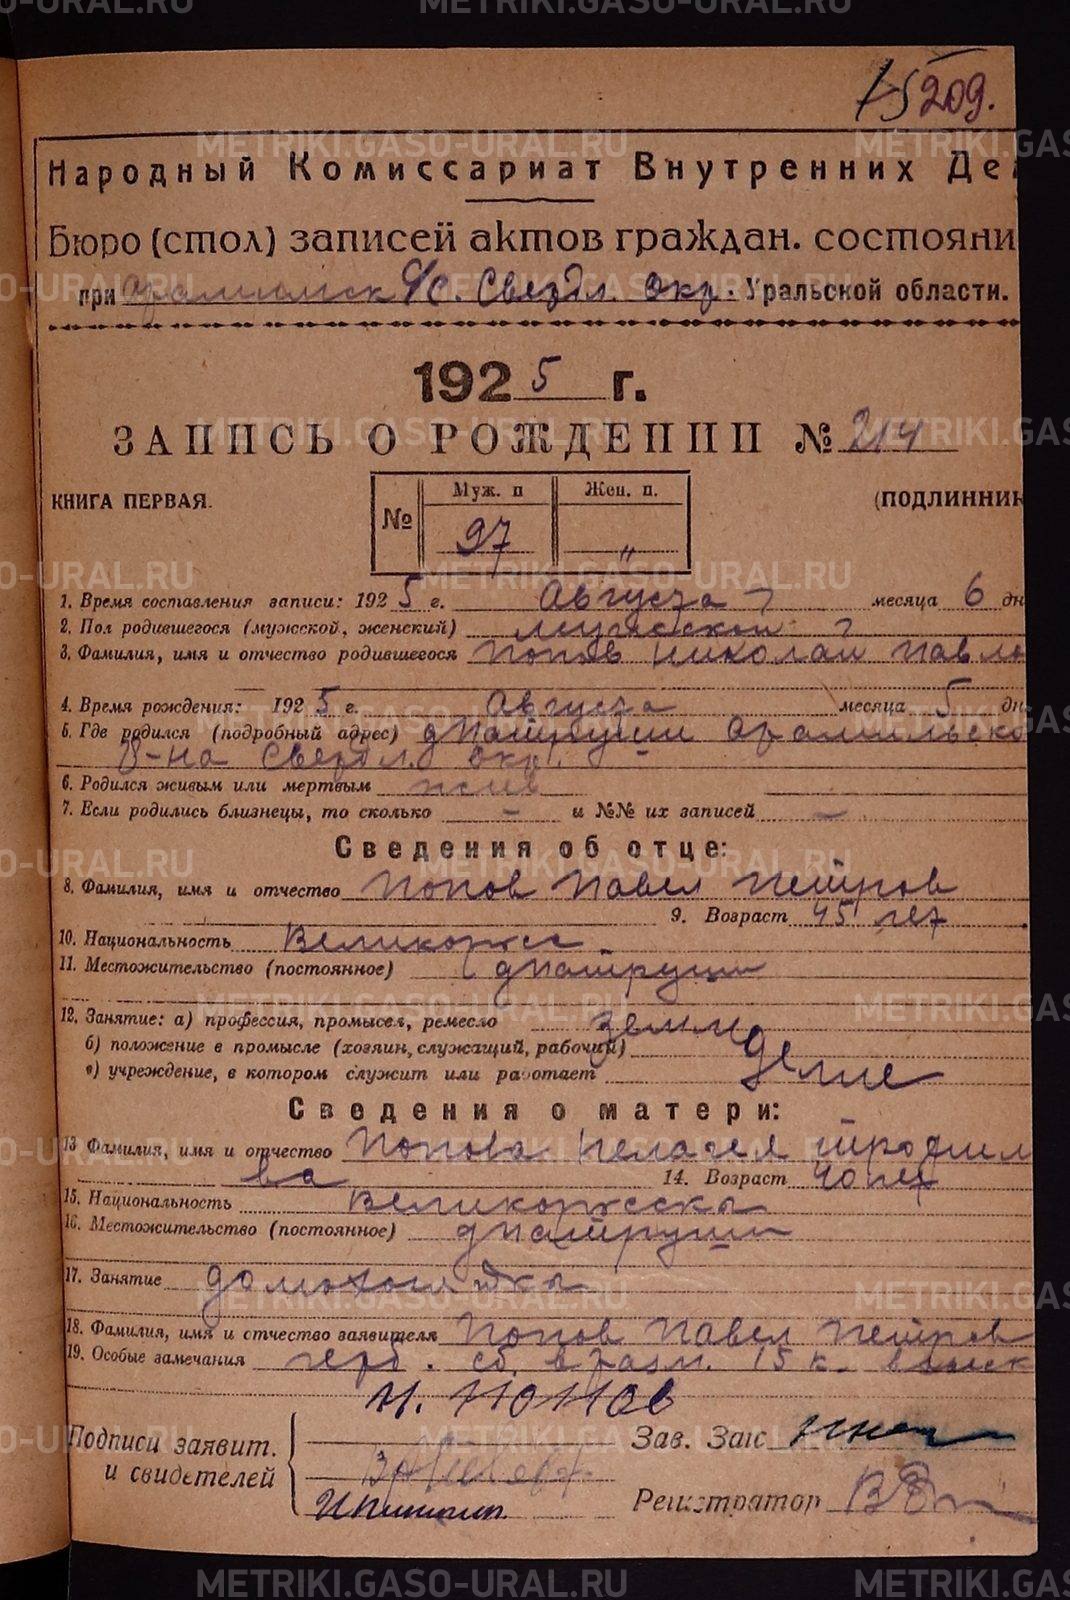 15 209.
Народный Комиссариат Внутренних Де
Бюро (стол) записей актов граждан. состояни
при Арамильск Свердл. Окр. Уральской области.
1925 г.
ЗАПИСЬ О РОЖДЕНИИ № 214
КНИГА ПЕРВАЯ. (ПОДЛИННИК
№ Муж. п Жен. п.
97 "
1. Время составления записи: 1925 г. Августа месяца 6 дн
2. Пол родившегося (мужской, женский) мужской
3. Фамилия, имя и отчество родившегося Попов Николай Павло
4. Время рождения: 1925 г. Августа месяца 5 дн
5. Где родился (подробный адрес) д Патруши Арамильско
Р-на Свердл. окр.
6. Родился живым или мертвым жив
7. Если родились близнецы, то сколько - и №№ их записей -
Сведения об отце:
8. Фамилия, имя и отчество Попов Павел Петров
9. Возраст 45 лет
10. Национальность Великорусс
11. Местожительство (постоянное) д Патруши
12. Занятие: а) профессия, промысел, ремесло Земле
б) положение в промысле (хозяин, служащий, рабочий)
в) учреждение, в котором служит или работает Делие
Сведения о матери:
13 Фамилия, имя и отчество Попова Пелагея Трофим
ва 14. Возраст 40 лет
15. Национальность Великорусска
16. Местожительство (постоянное) д Патруши
17. Занятие домохозяйка
18. Фамилия, имя и отчество заявителя Попов Павел Петров
19. Особые замечания герб. сб. в разм. 15 к.
П. Попов
Подписи заявит. Зав. Загс
и свидетелей
Регистратор
METRIKI.GASO-URAL.RU